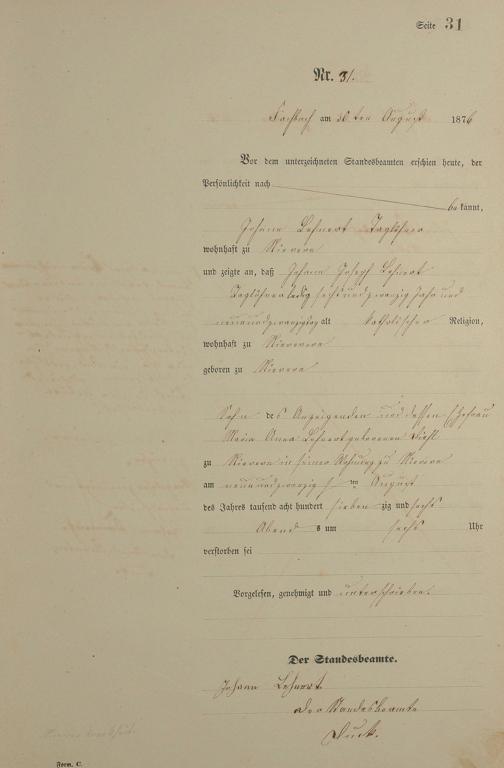 Seite 31
Nr. 31.
Fachbach am 30ten August 1876
Vor dem unterzeichneten Standesbeamten erschien heute, der
Persönlichkeit nach
bekannt,
Johann Lehnert Taglöhner
wohnhaft zu Nievern
und zeigte an, daß Johann Joseph Lehnert
Taglöhner ledig sechsundzwanzig Jahr und
neunundzwanzig Tag alt katholischer Religion,
wohnhaft zu Nievern
geboren zu Nievern
Sohn des Anzeigenden und dessen Ehefrau
Maria Anna Lehnert geborenen
zu Nievern in seiner Wohnung zu Nievern
am neunundzwanzigsten August
des Jahres tausend acht hundert siebenzig und sechs
Abends um sechs Uhr
verstorben sei
Vorgelesen, genehmigt und unterschrieben.
Johann Lehnert
Der Standesbeamte.
der Standesbeamte
Form. C.